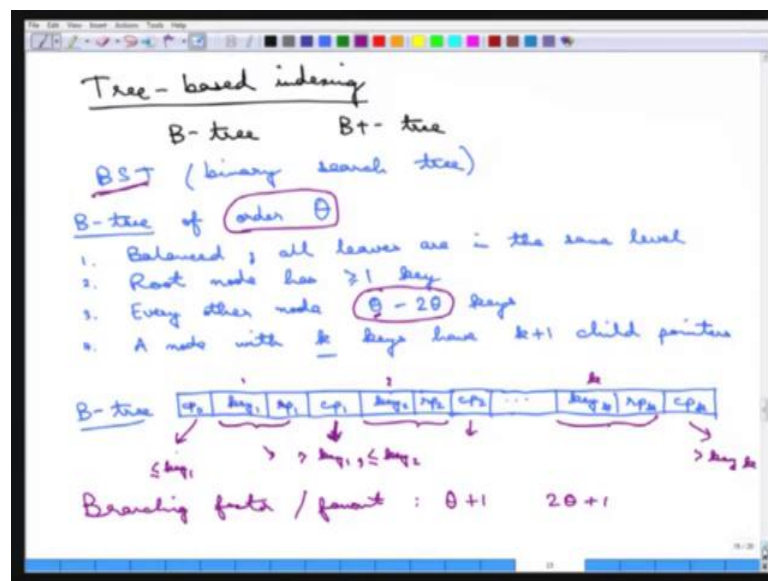 File Edit View Insert Actions Tools Help
Tree-based indexing
B-tree B+-tree
BST (binary search tree)
B-tree of order θ
1. Balanced, all leaves are in the same level
2. Root node has ≥1 key
3. Every other node θ - 2θ keys
4. A node with k keys have k+1 child pointers
1 2 k
B-tree cp₀ key₁ rp₁ cp₁ key₂ rp₂ cp₂ ... key_k rp_k cp_k
≤key₁ > > key₁, ≤key₂ > key k
Branching factor / fanout : θ+1 2θ+1